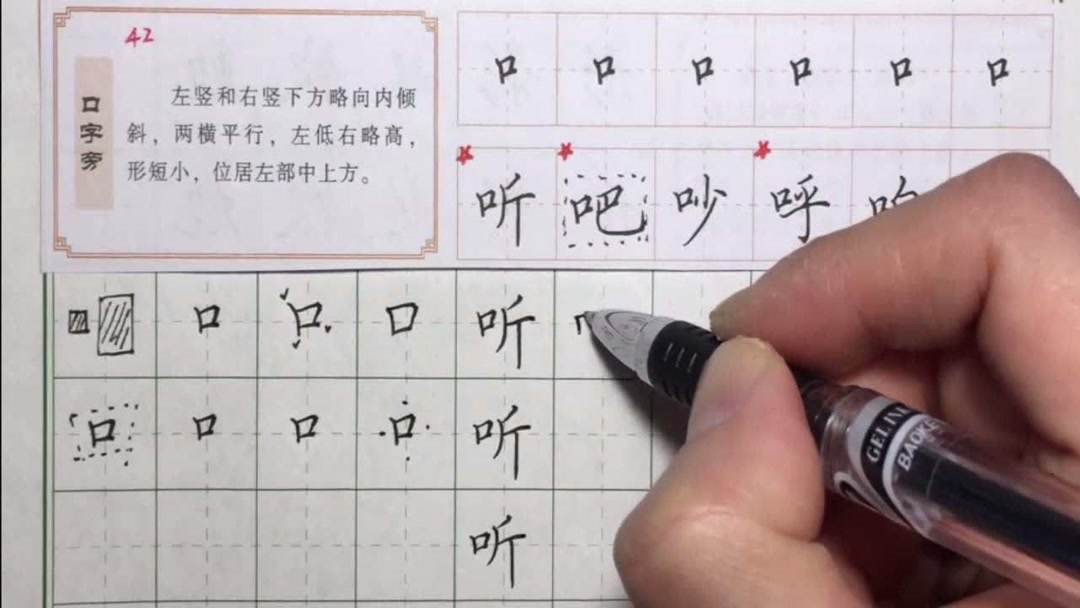 42
口字旁
左竖和右竖下方略向内倾
斜，两横平行，左低右略高，
形短小，位居左部中上方。
口 口 口 口 口 口
听 吧 吵 呼
口 口 口 听
口 口 口 口 听
听
GEL INK